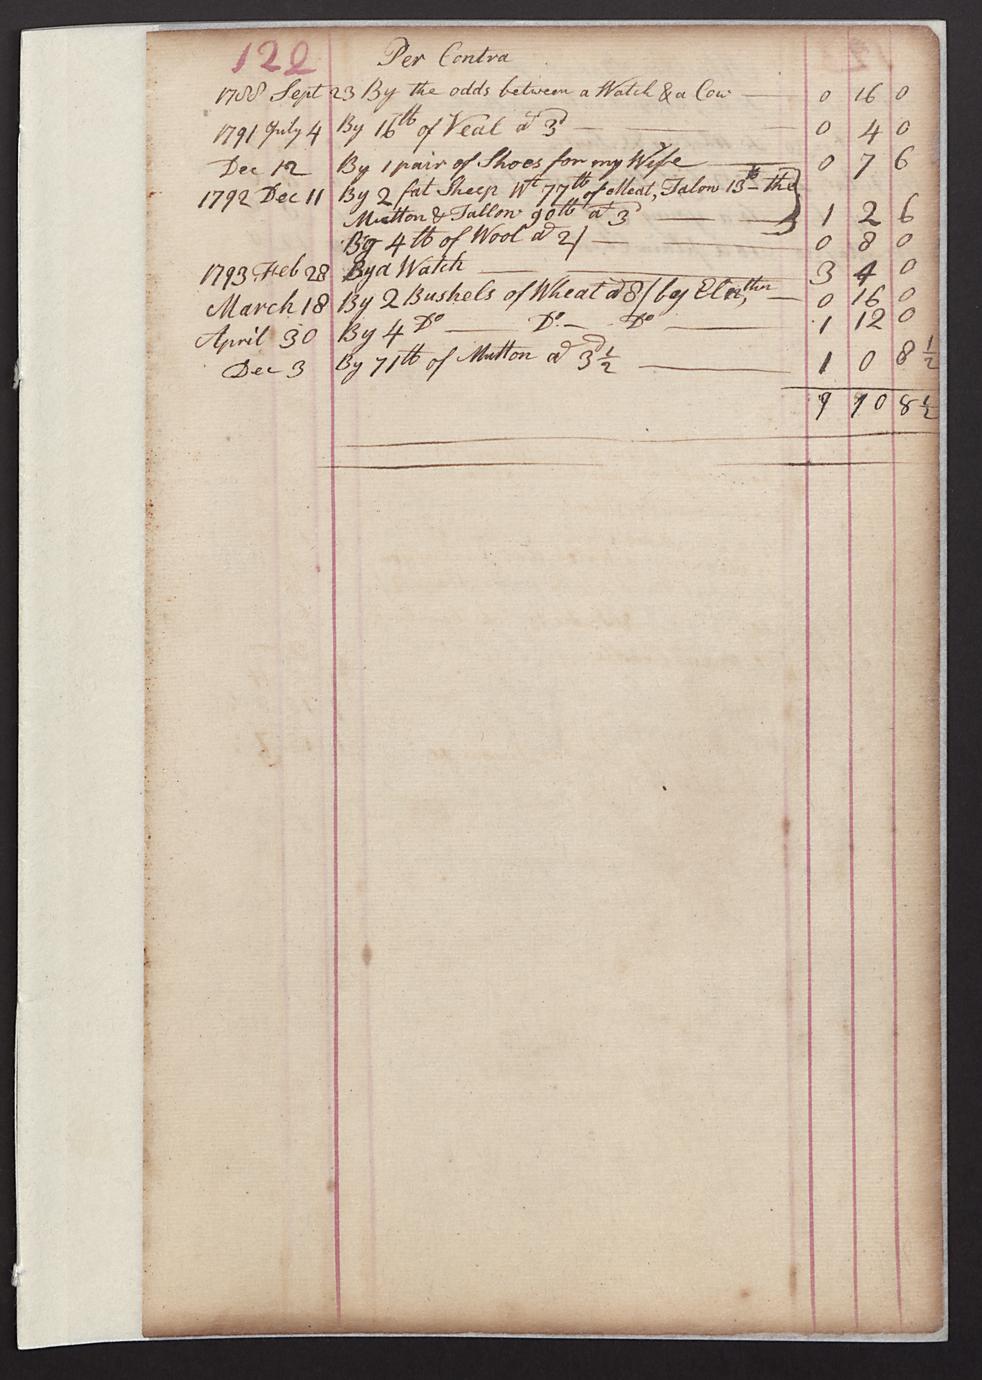 122 Per Contra
1788 Sept 23 By the odds between a Watch & a Cow 0 16 0
1791 July 4 By 16 lb of Veal a 3d 0 4 0
Dec 12 By 1 pair of Shoes for my Wife 0 7 6
1792 Dec 11 By 2 fat Sheep Wt 77 lb of Meat, Talon 13 lb the
Mutton & Tallow 90 lb a 3 1 2 6
By 4 lb of Wool a 2/ 0 8 0
1793 Feb 28 By a Watch 3 4 0
March 18 By 2 Bushels of Wheat a 8/ by 0 16 0
April 30 By 4 Do Do Do 1 12 0
Dec 3 By 71 lb of Mutton a 3d ½ 1 0 8 ½
9 10 8 ½